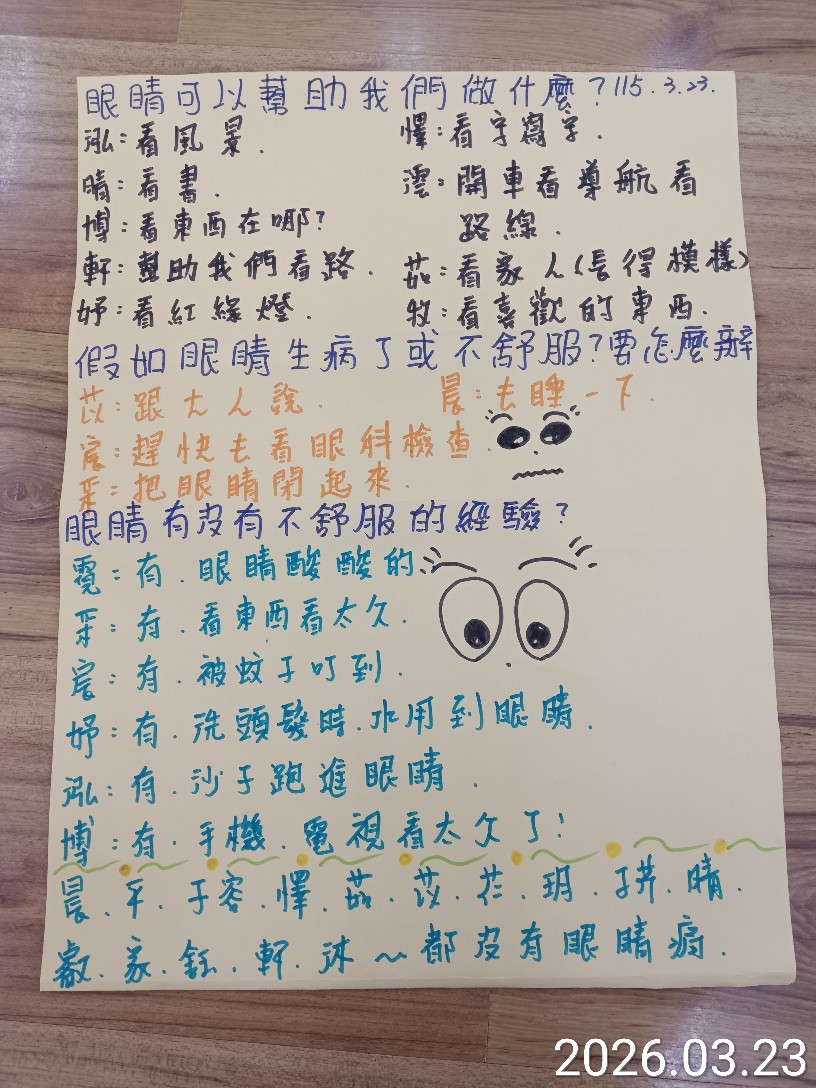 眼睛可以幫助我們做什麼?115.3.23.
泓:看風景.
晴:看書.
博:看東西在哪?
軒:幫助我們看路.
妤:看紅綠燈.
懌:看字寫字.
澐:開車看導航看
路線.
茹:看家人(長得模樣)
牧:看喜歡的東西.
假如眼睛生病了或不舒服?要怎麼辦
苡:跟大人說.
晨:去睡一下.
宸:趕快去看眼科檢查.
采:把眼睛閉起來.
眼睛有沒有不舒服的經驗?
霓:有.眼睛酸酸的
采:有.看東西看太久.
宸:有.被蚊子叮到.
妤:有.洗頭髮時.水用到眼睛.
泓:有.沙子跑進眼睛.
博:有.手機.電視看太久了!
晨.平.子容.懌.茹.苡.芢.玥.子荓.晴.
叡.家.鈺.軒.沐~都沒有眼睛痛.
2026.03.23